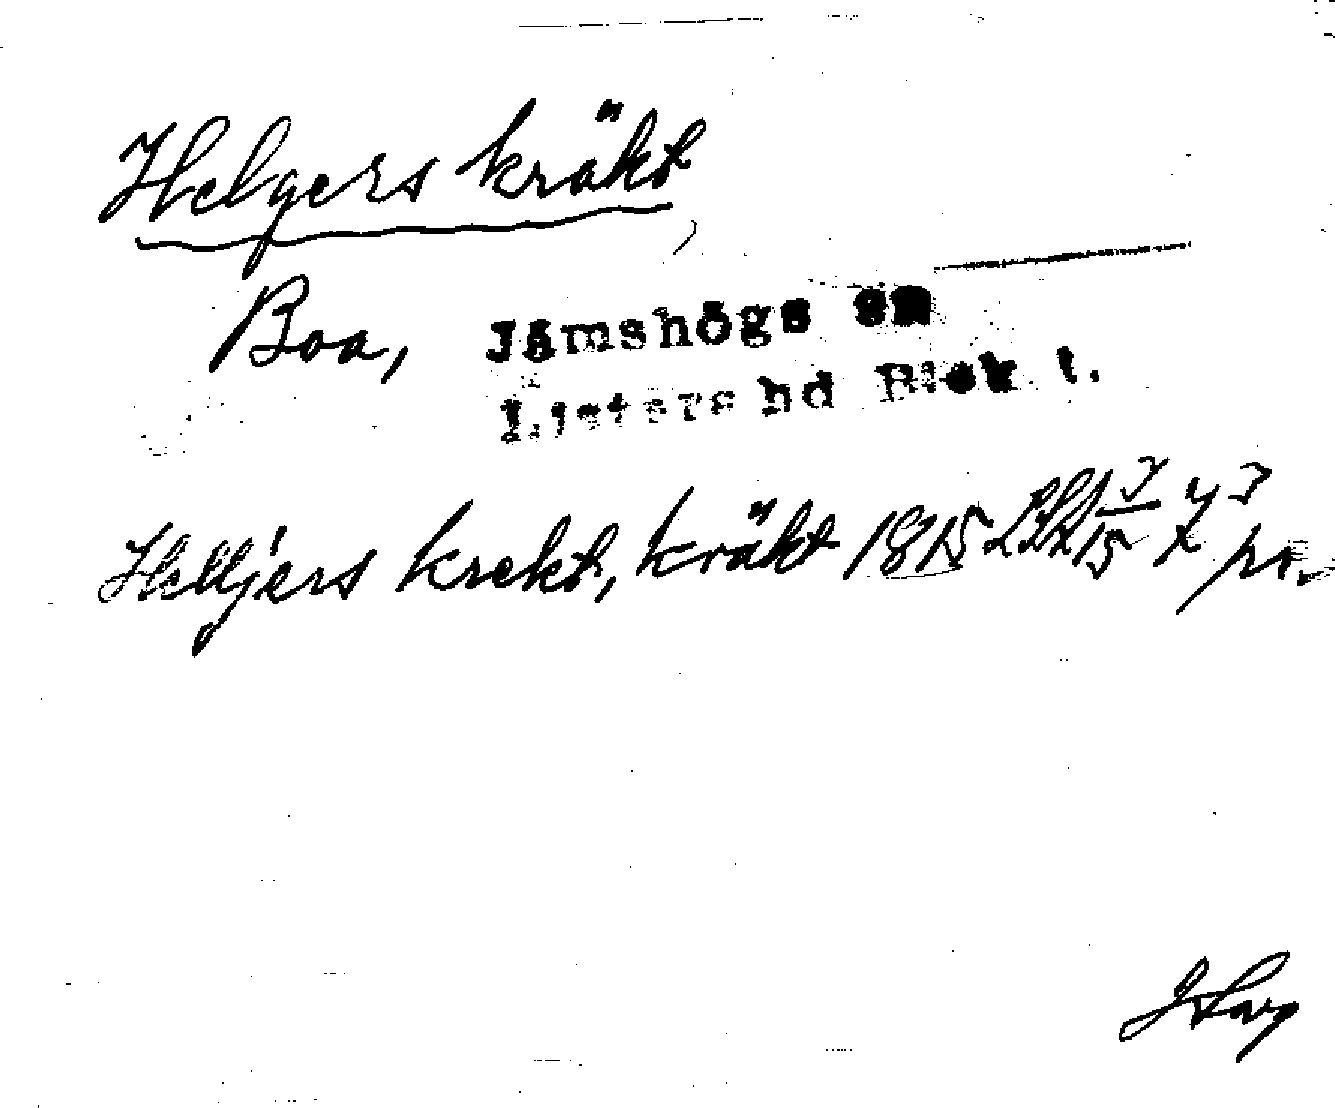 Helgers kräkt
Boa, Jämshögs sn
Listers hd Blek l.
Helljers krekt, kräkt 1815